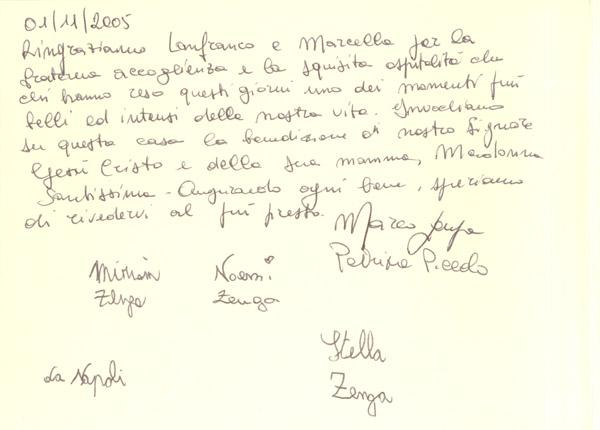 01/11/2005
Ringraziamo Lanfranco e Marcella per la
fraterna accoglienza e la squisita ospitalità che
ci hanno reso questi giorni uno dei momenti più
belli ed intensi della nostra vita. Invochiamo
su questa casa la benedizione di nostro Signore
Gesù Cristo e della sua mamma, Madonna
Santissima - Augurando ogni bene, speriamo
di rivedervi al più presto.
Marco Zenga
Patrizia Piccolo
Miriam Noemi
Zenga Zenga
Stella
Zenga
da Napoli